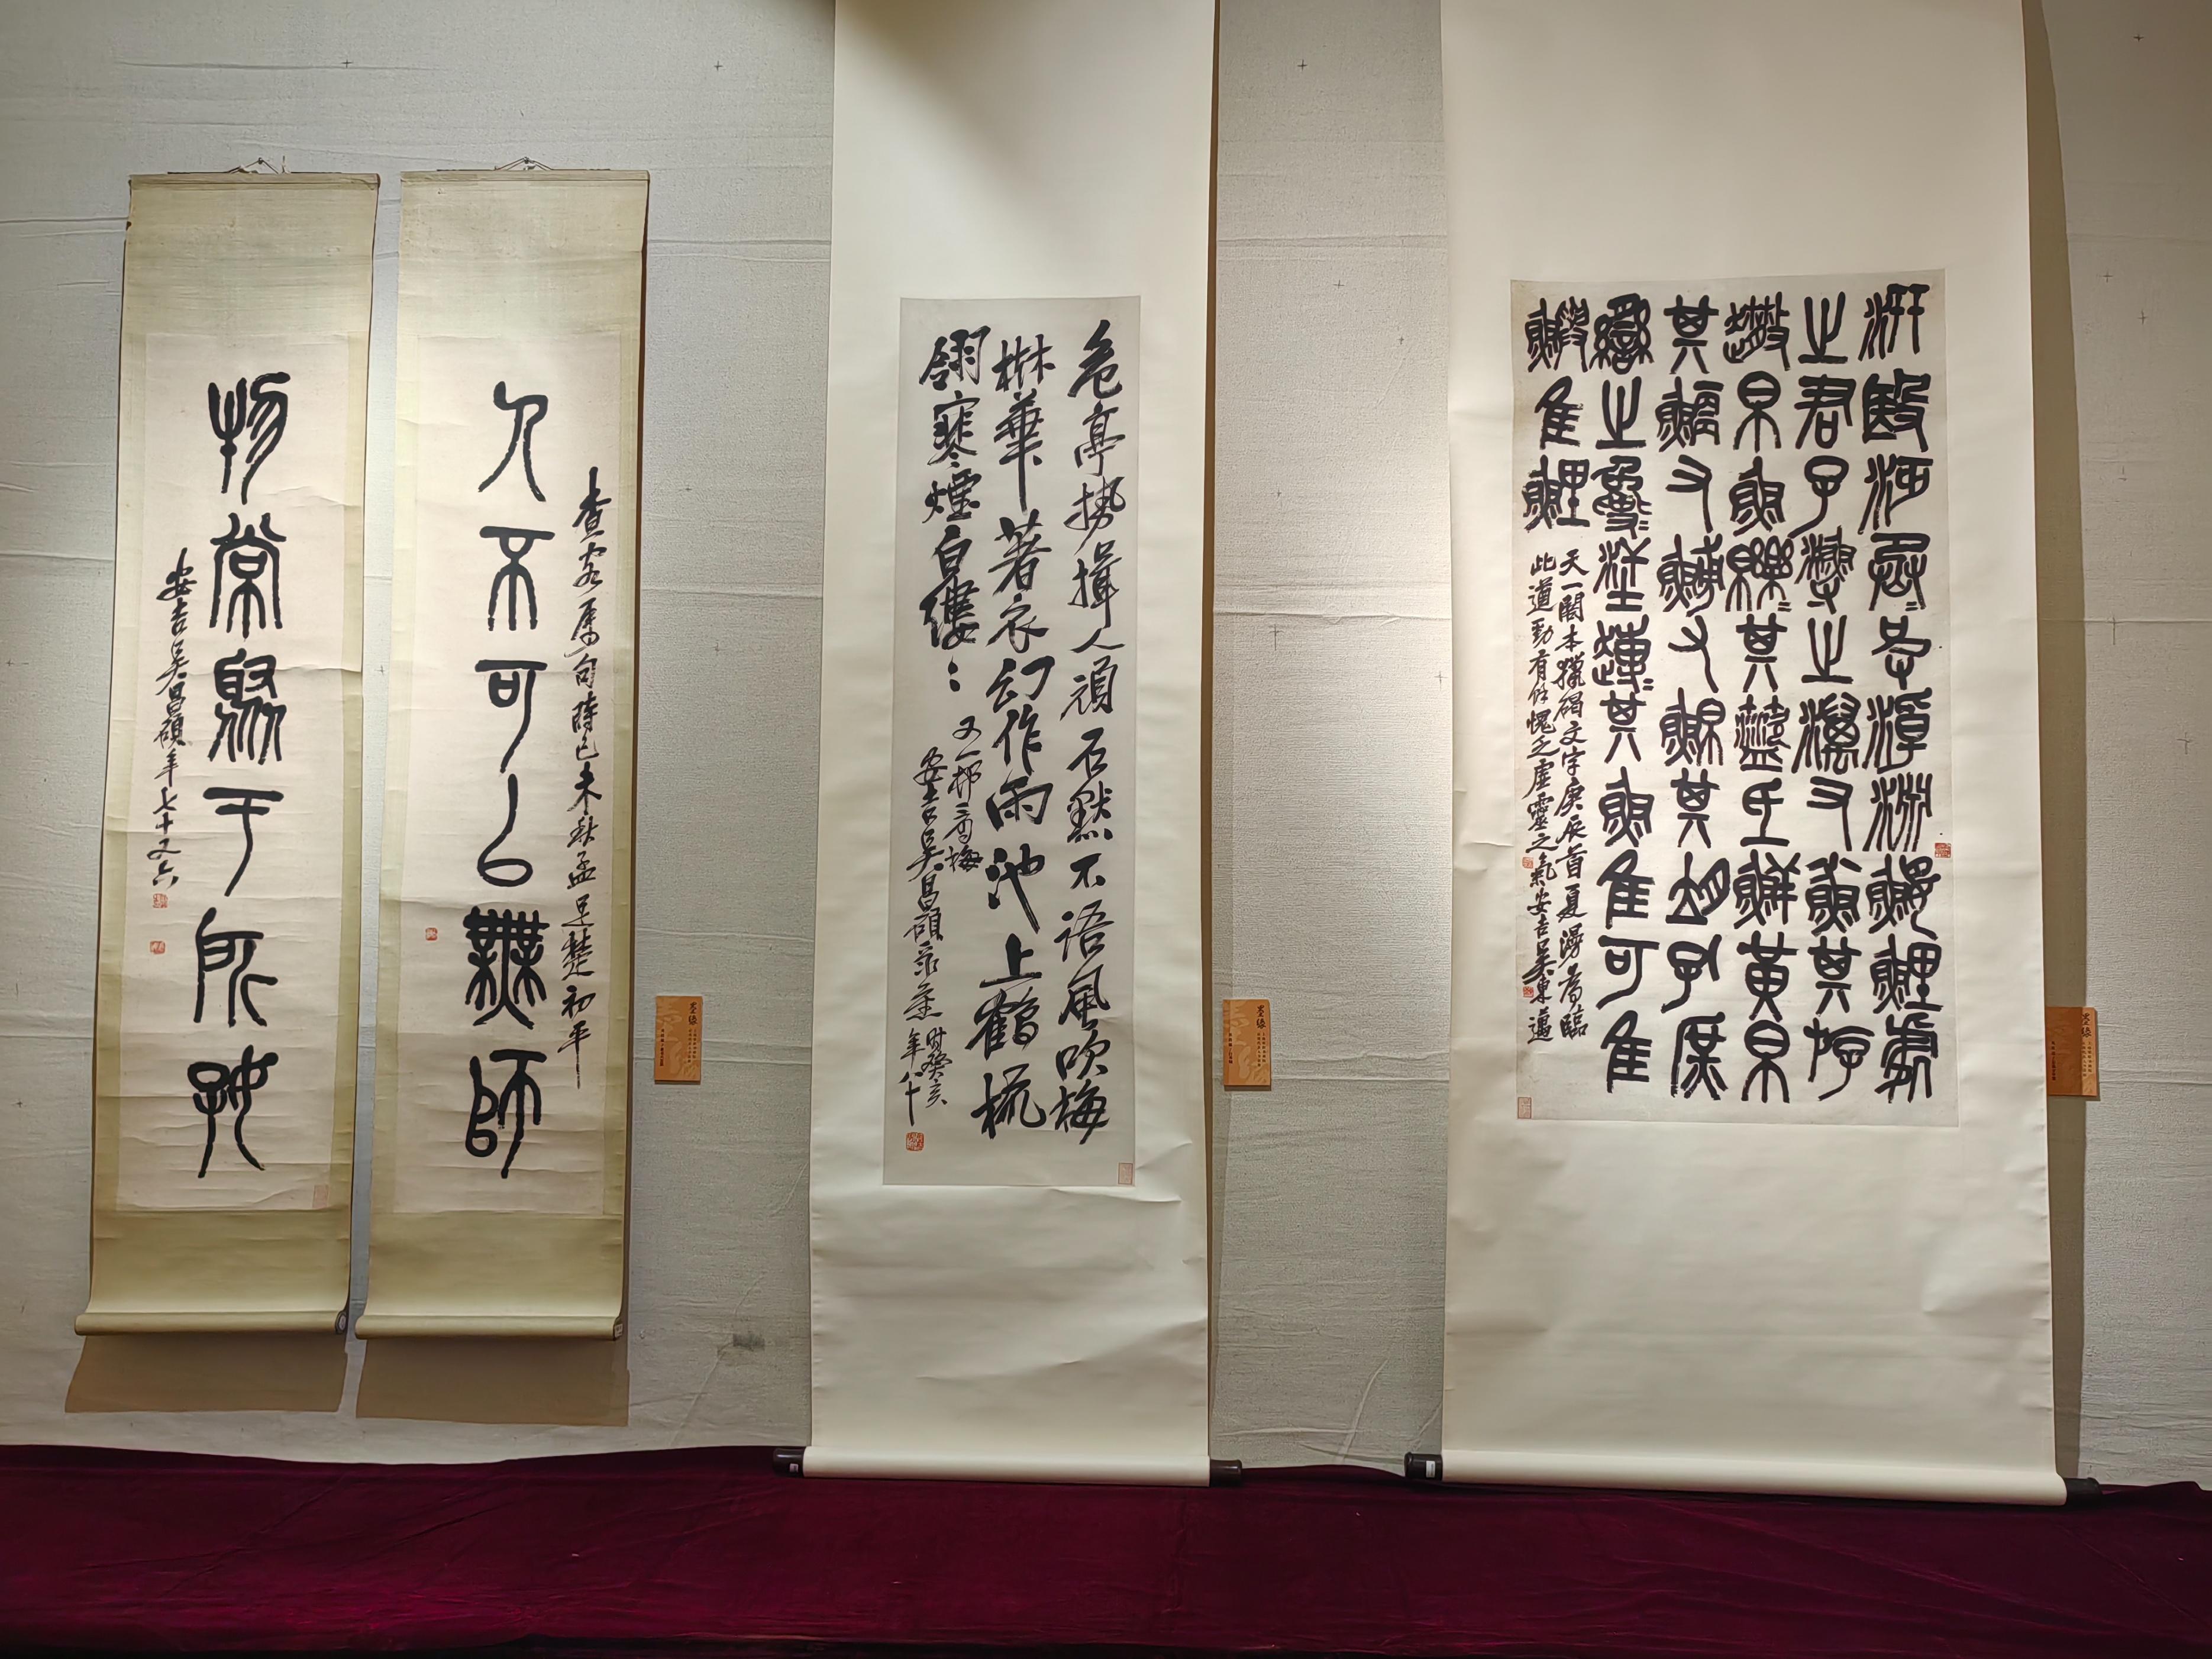 查客屬句時己未秋孟
人不可㠯無師
物常聚于所好
安吉吳昌碩年七十又六
危亭勢揖人頑石默不語風吹梅
樹華著衣幻作雨池上鶴梳
翎寒煙白縷:
又一邨看梅
安吉吳昌碩
時癸亥
年八十
汧殹沔丞=皮淖淵鰋鯉處
之君子漁之澫又其斿
帛魚皪=其盜氐鮮黃帛
其鯾又鰟又其孔庶
臠之其魚隹可隹
隹鯉
天一閣本獵碣文字庚辰首夏漫為臨
此遒勁有餘愧乏虛靈之氣安吉吳東邁
墨緣
墨緣
墨緣